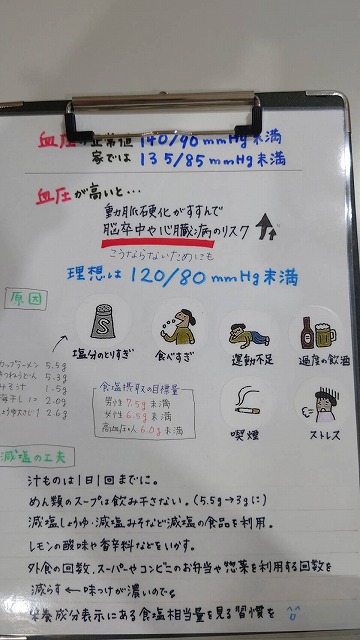 血圧の正常値 140/90mmHg未満
家では 135/85mmHg未満
血圧が高いと…
動脈硬化がすすんで
脳卒中や心臓病のリスク
こうならないためにも
理想は 120/80mmHg未満
原因
塩分のとりすぎ
食べすぎ
運動不足
過度の飲酒
カップラーメン 5.5g
きつねうどん 5.3g
みそ汁 1.5g
梅干し1コ 2.0g
しょうゆ大さじ1 2.6g
食塩摂取の目標量
男性 7.5g未満
女性 6.5g未満
高血圧の人 6.0g未満
喫煙
ストレス
減塩の工夫
汁ものは1日1回までに。
めん類のスープは飲み干さない。(5.5g→3gに)
減塩しょうゆ・減塩みそなど減塩の食品を利用。
レモンの酸味や香辛料などをいかす。
外食の回数、スーパーやコンビニのお弁当や惣菜を利用する回数を
減らす ← 味つけが濃いので。
栄養成分表示にある食塩相当量を見る習慣を